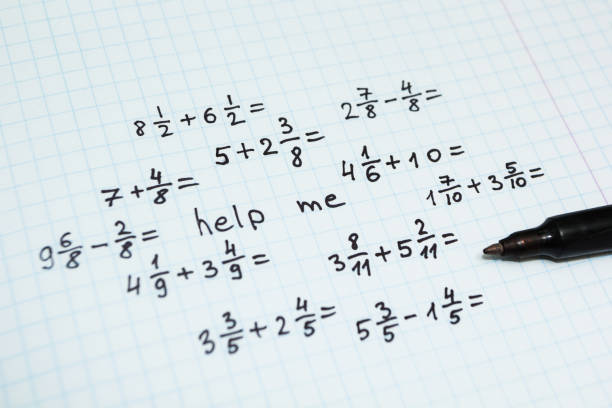 8 1/2 + 6 1/2 =
2 7/8 - 4/8 =
5 + 2 3/8 =
7 + 4/8 =
4 1/6 + 10 =
1 7/10 + 3 5/10 =
help me
9 6/8 - 2/8 =
4 1/9 + 3 4/9 =
3 8/11 + 5 2/11 =
3 3/5 + 2 4/5 =
5 3/5 - 1 4/5 =